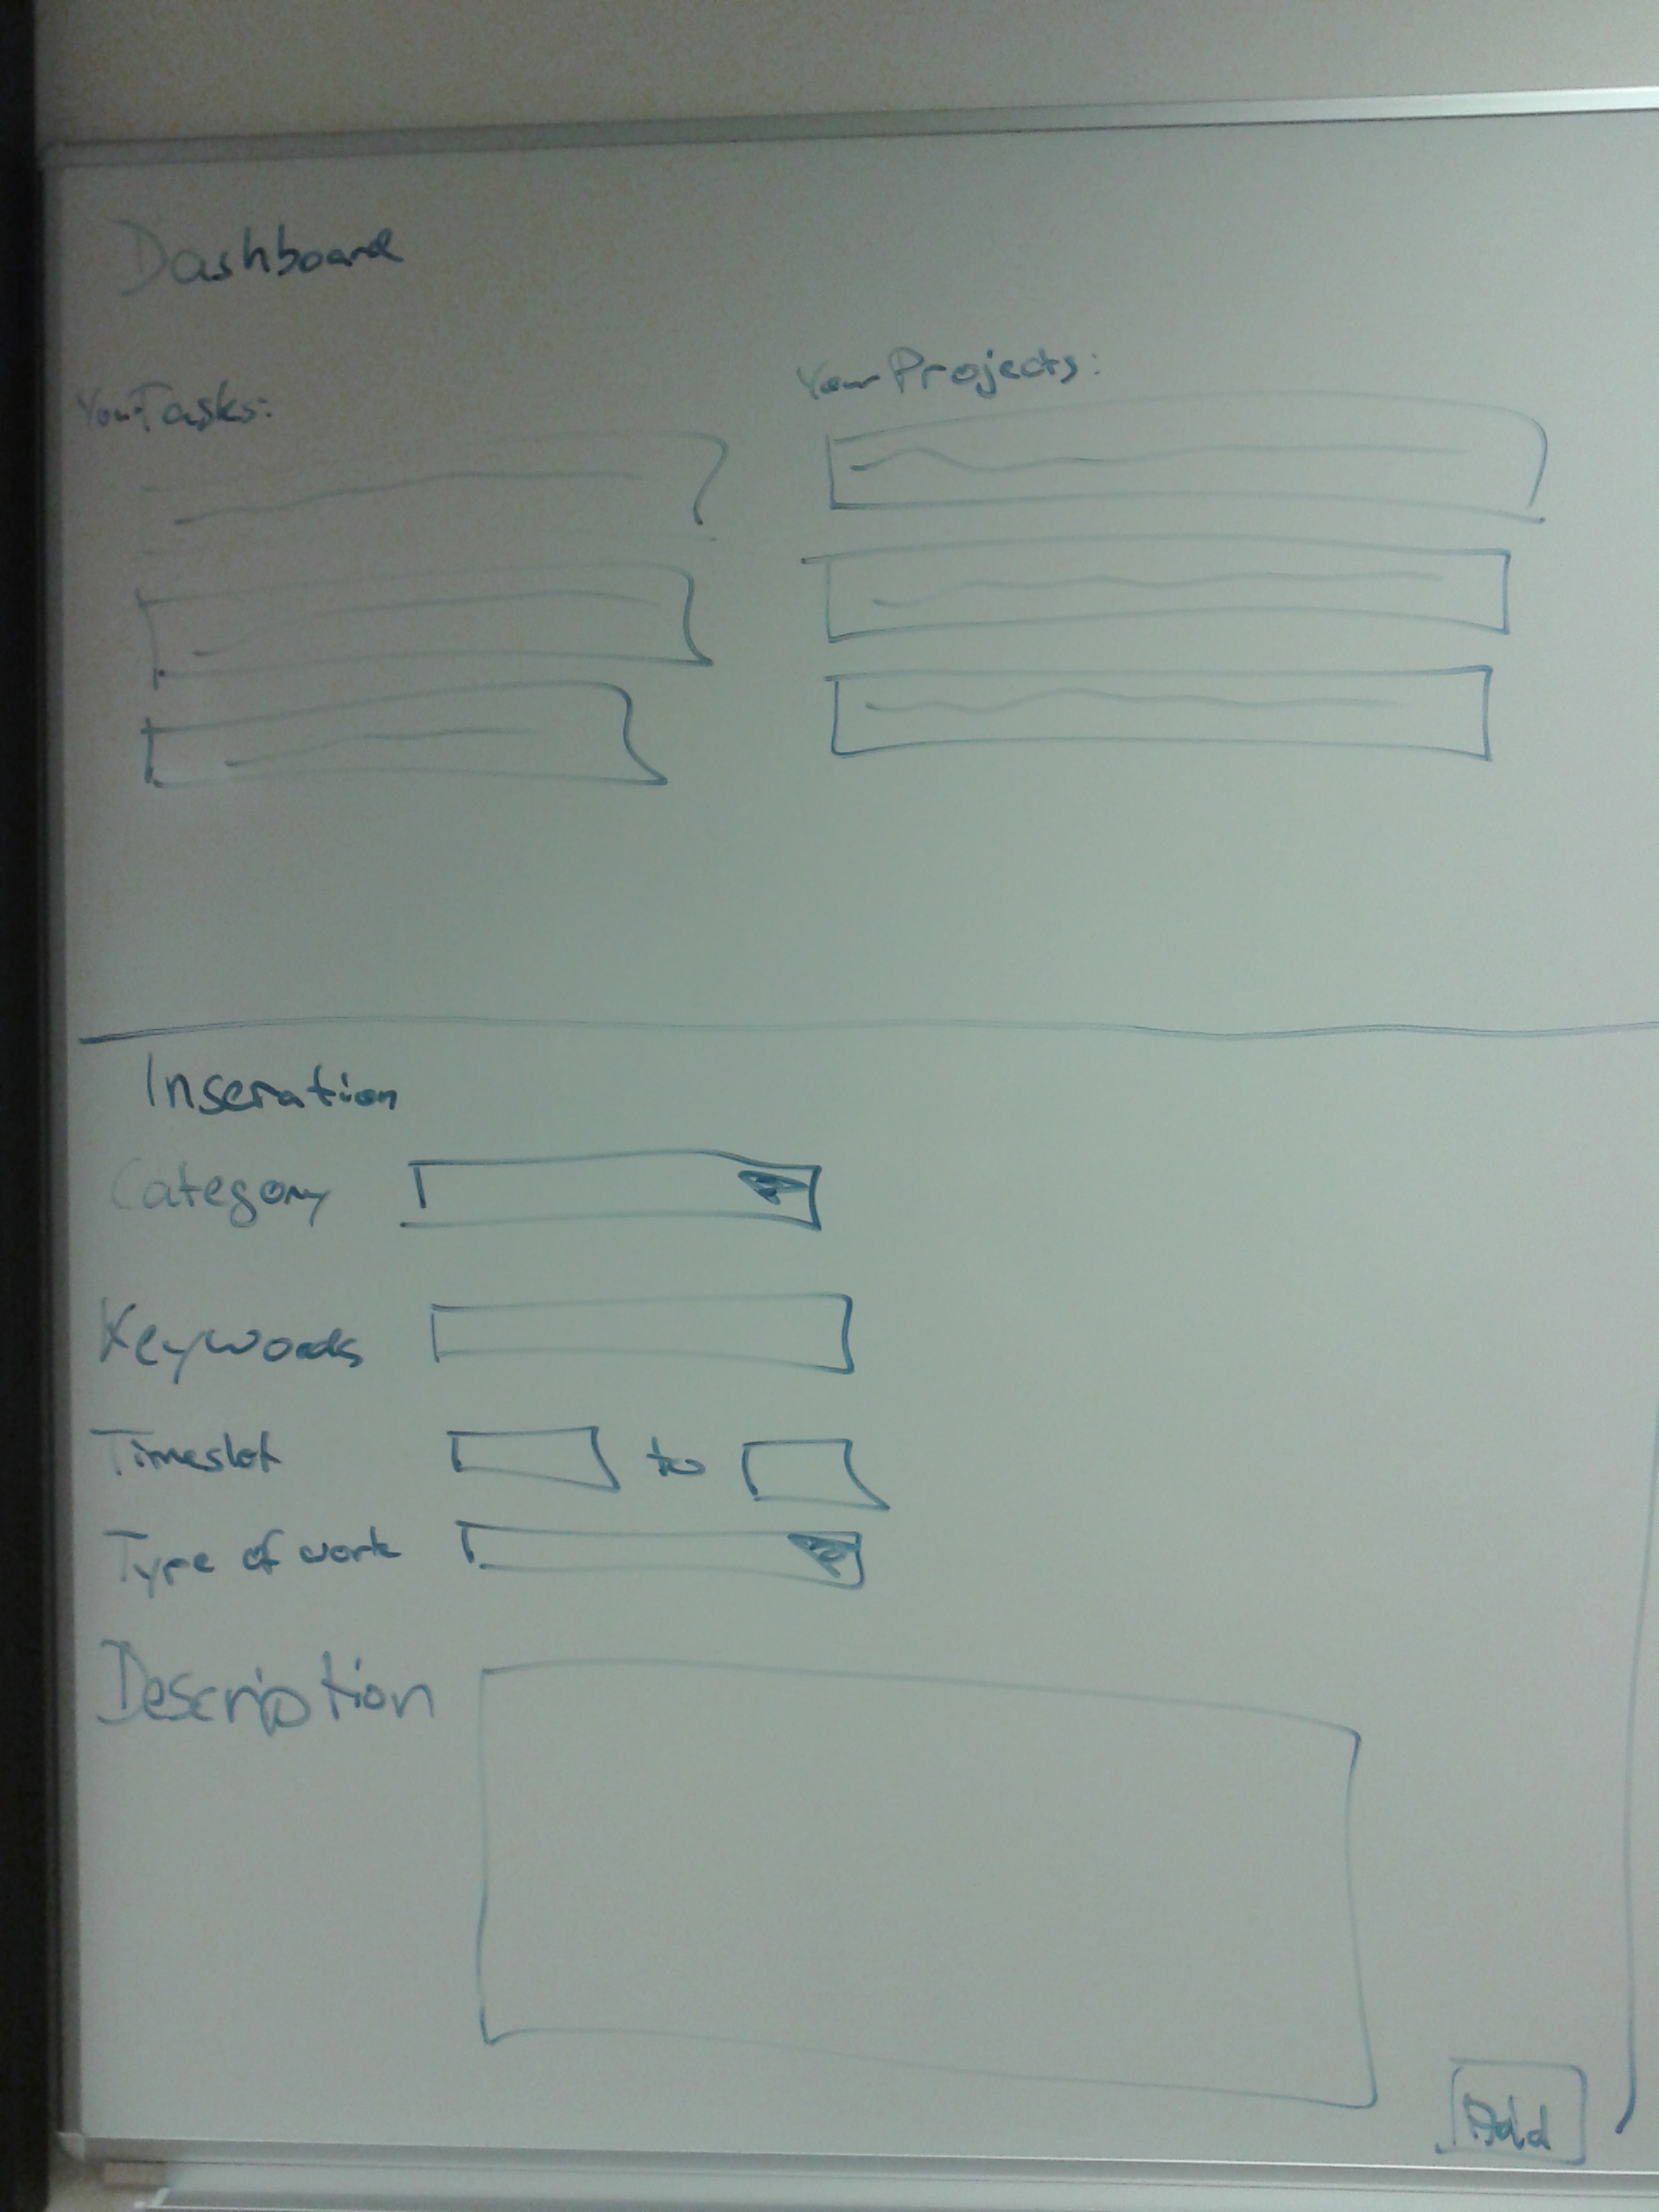 Dashboard
Your Tasks:
Your Projects:
Inseration
Category
Keywords
Timeslot
to
Type of work
Description
Add